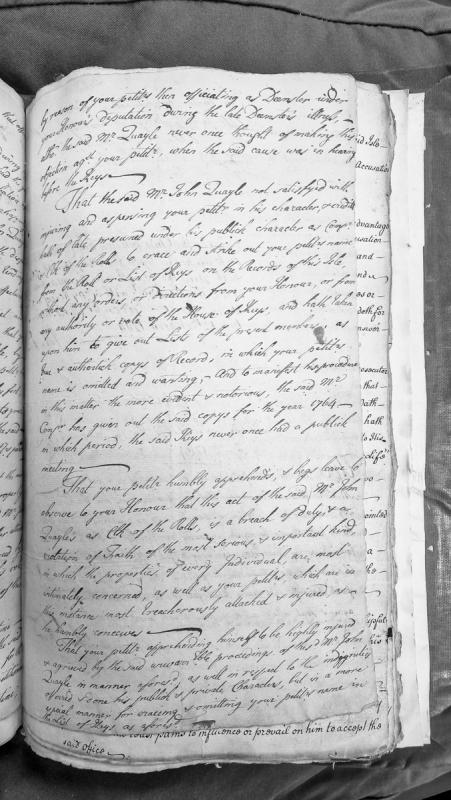 by reason of your petitrs then officiating as Deemster under
your Honour's deputation during the late Deemster's illness,
altho' the said Mr Quayle never once thought of making this
objection agst your petitr, when the said cause was in hearing
before the Keys
That the said Mr John Quayle not satisfyd with
injuring and aspersing your petitr in his character, & credit
hath of late presumed under his publick character as Compr
& Clk of the Rolls to erace and strike out your petitrs name
from the Roll or List of Keys on the Records of this Isle,
without any orders or Directions from your Honour, or from
any authority or vote of the House of Keys, and hath taken
upon him to give out Lists of the present members, as
true & authentick copys of Record, in which your petitrs
name is omitted and wanting, And to manifest his procedure
in this matter the more evident & notorious, the said Mr
Compr has given out the said copys for the year 1764
in which period, the said Keys never once had a publick
meeting
That your petitr humbly apprehends, & begs leave to
observe to your Honour that this act of the said Mr John
Quayle's as Clk of the Rolls, is a breach of duty & a
violation of Trust of the most serious & important kind,
in which the propertys of every Individual, are most
intimately concerned, as well as your petitrs, which are in
this instance most treacherously attacked & injured as
he humbly conceives
That your petitr apprehending himself to be highly injured
& agrieved by the said proceedings of the sd Mr John
Quayle in manner aforesd, as well in respect to the indignity
offered & done his publick & private Character, but in a more
especial manner for eracing & omitting your petitrs name in
the List of Keys as aforesd
pains to influence or prevail on him to accept the
said office